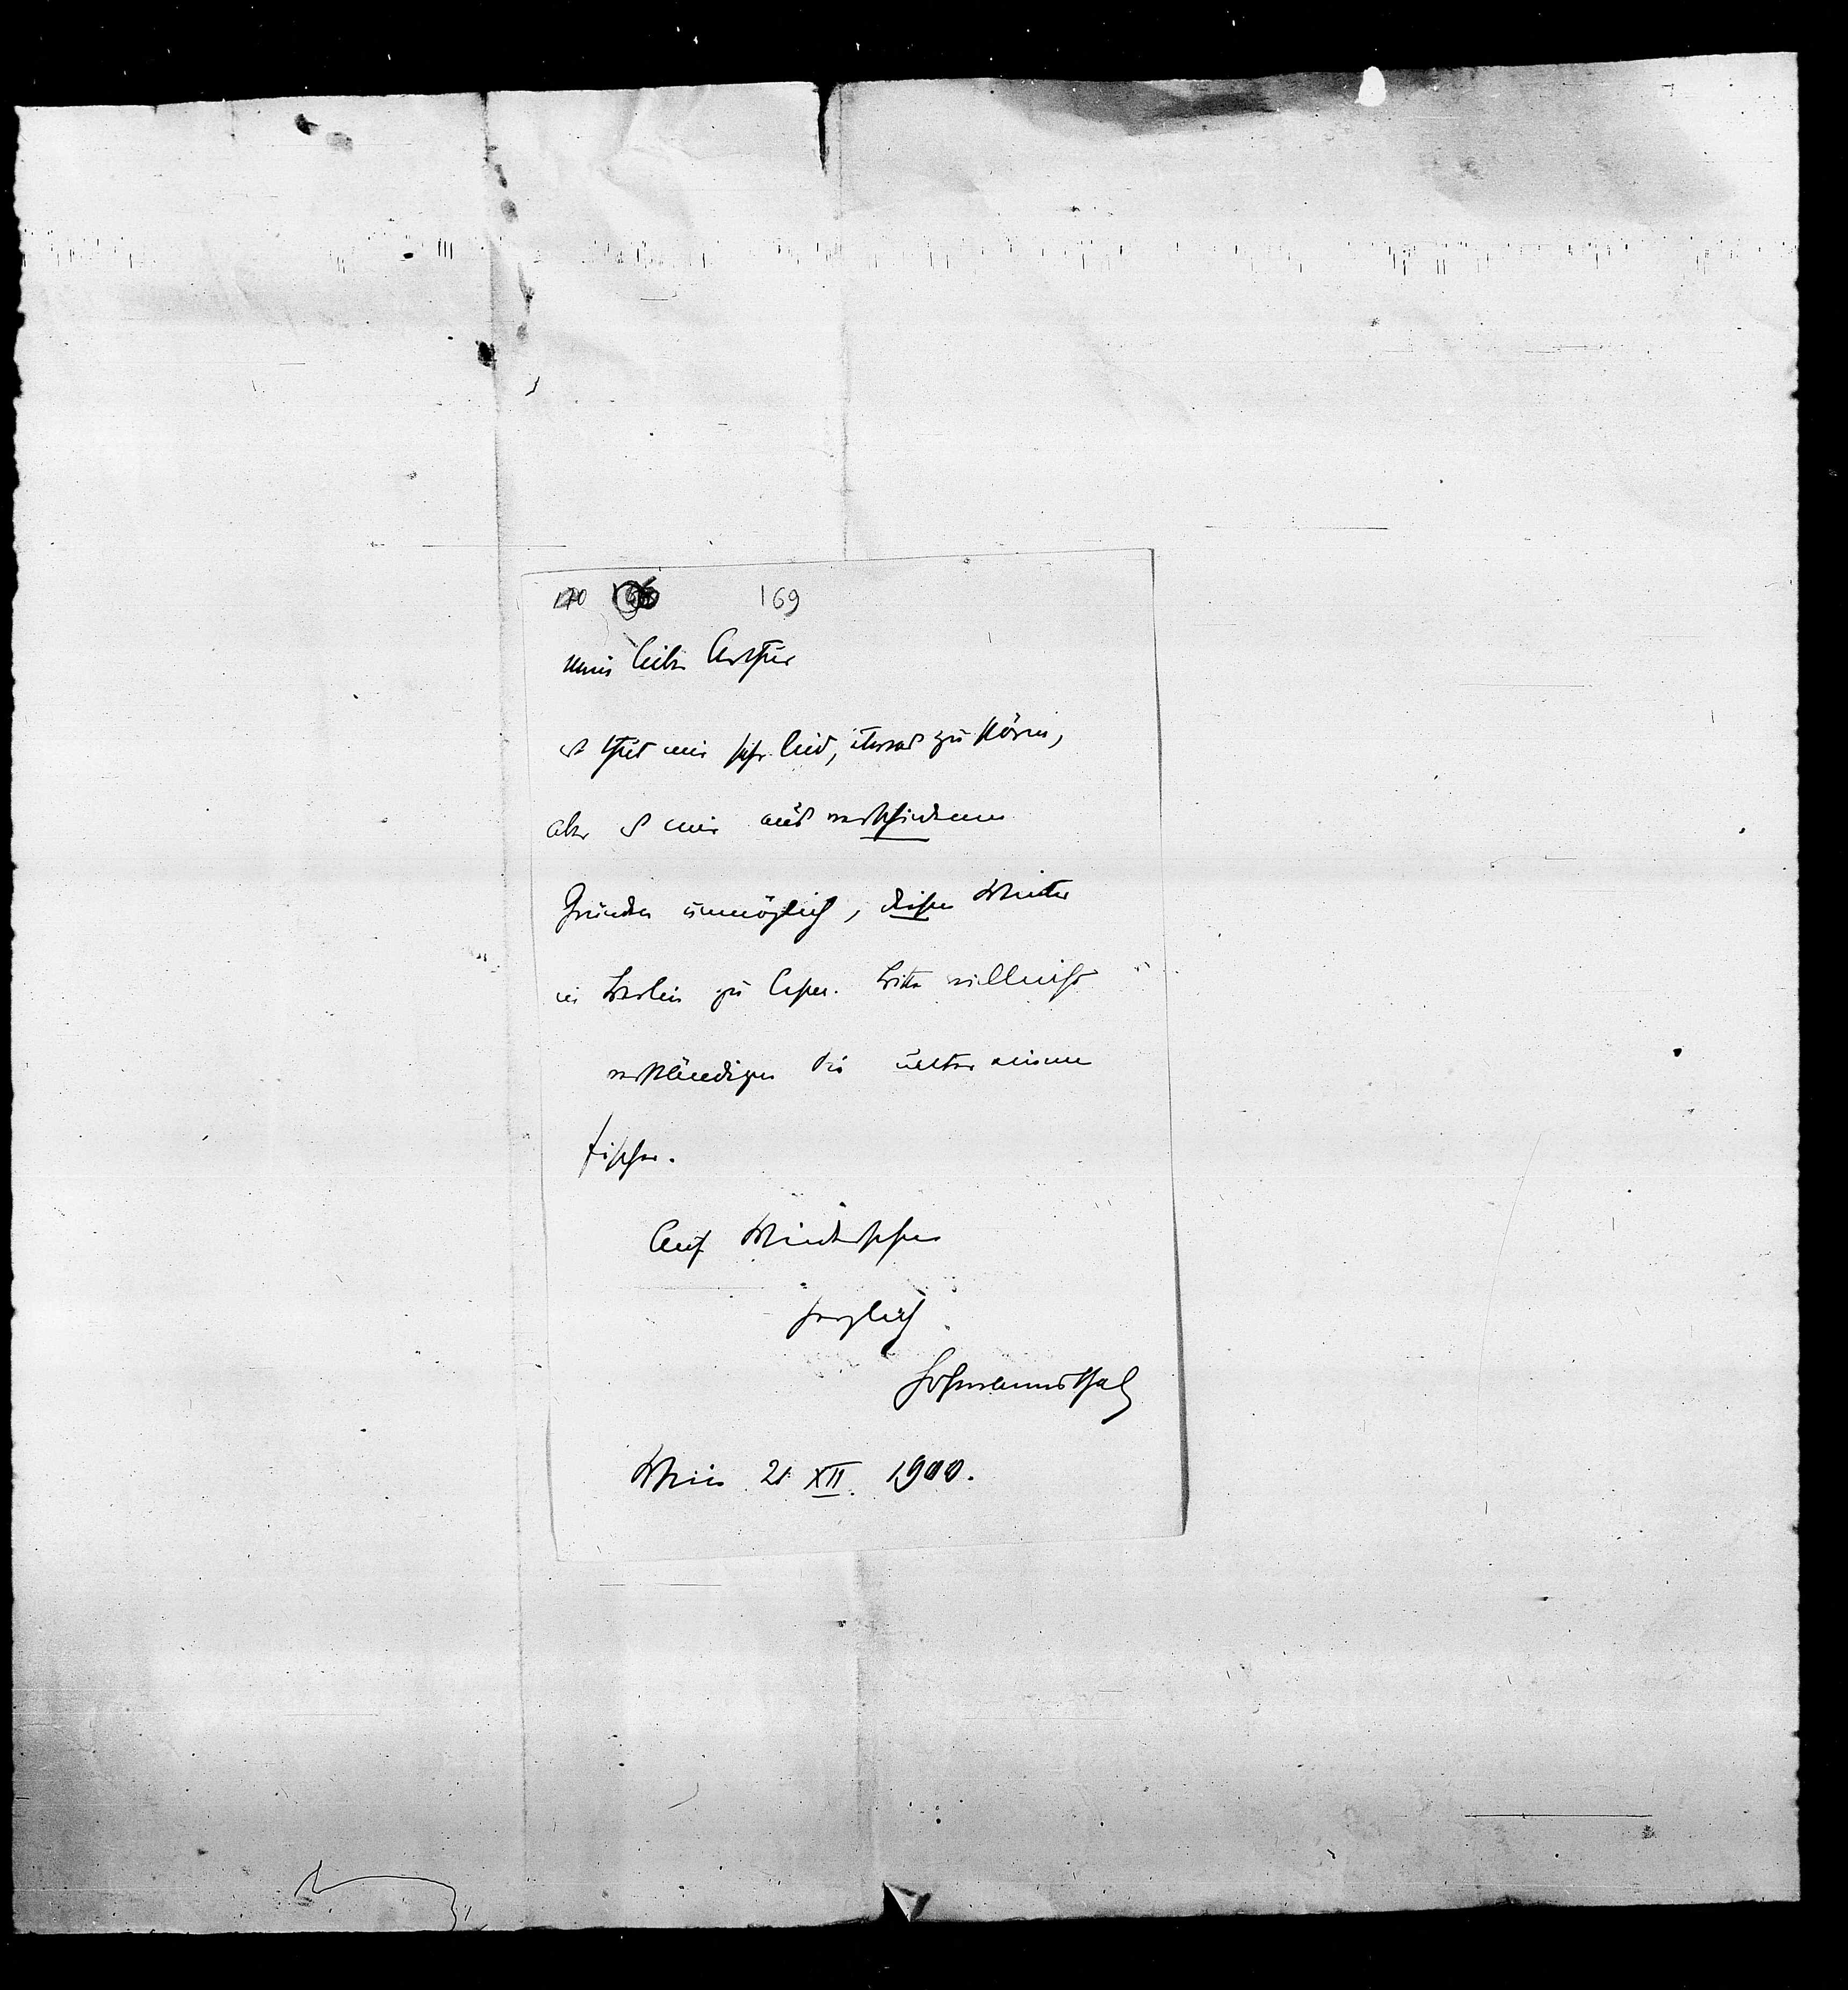 170 169
mein lieber Arthur
es thut mir sehr leid, etwas zu stören,
aber es mir aus verschiedenen
Gründen unmöglich, diesen Winter
in Berlin zu lesen. Bitte vielleicht
verständigen Sie
Fischer.
Auf Wiedersehen
herzlich
Hofmannsthal
Wien 21 XII. 1900.